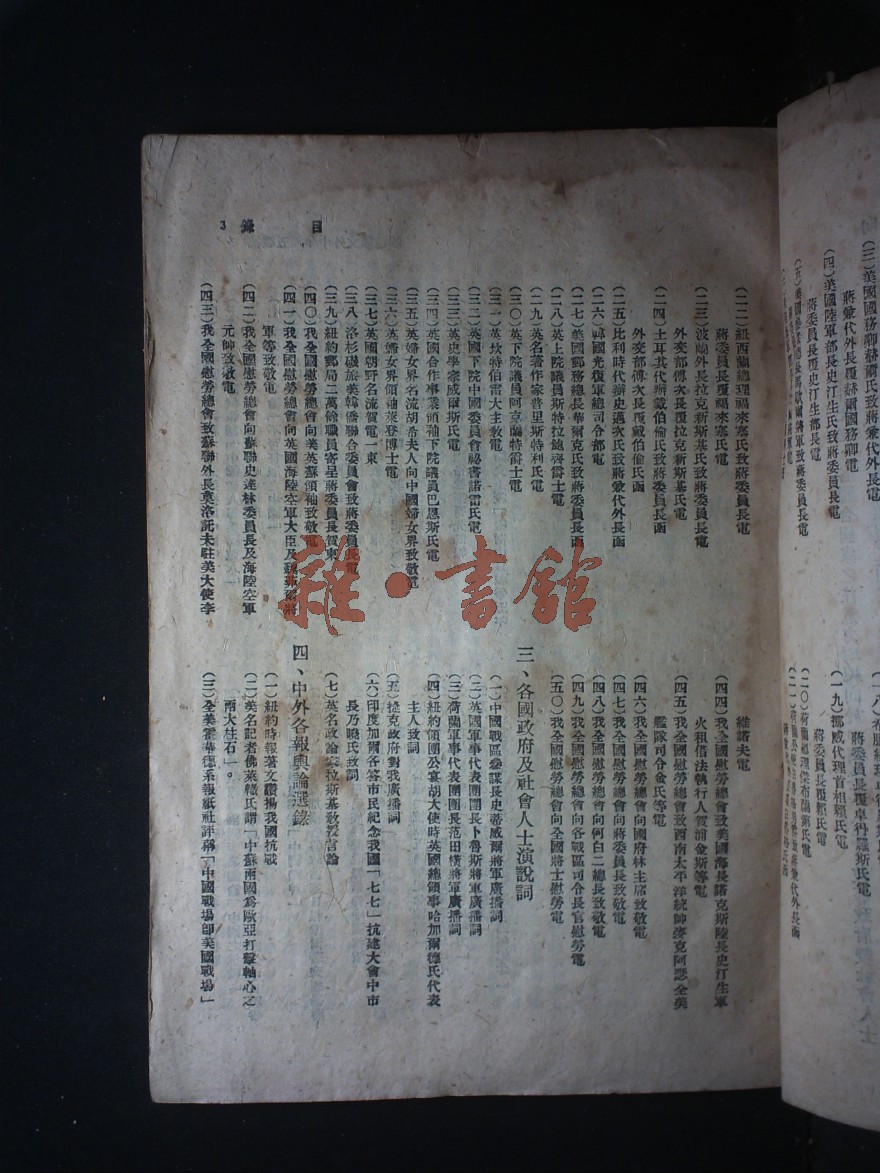 目錄 3
（二二）紐西蘭總理福來塞氏致蔣委員長電
蔣委員長覆福來塞氏電
（二三）波蘭外長拉克新斯基氏致蔣委員長電
外交部傅次長覆拉克新斯基氏電
（二四）土耳其代辦戴伯倫氏致蔣委員長函
外交部傅次長覆戴伯倫氏函
（二五）比利時代辦史邁次氏致蔣兼代外長函
（二六）韓國光復軍總司令部電
（二七）美國郵務總長華爾克氏致蔣委員長函
（二八）英上院議員斯特拉總督爵士電
（二九）英名著作家普里斯特利氏電
（三〇）英下院議員阿克蘭特爵士電
（三一）英坎特伯雷大主教電
（三二）英國下院中國委員會祕書諾雷氏電
（三三）英史學家威爾斯氏電
（三四）英國合作事業領袖下院議員巴恩斯氏電
（三五）英婦女界名流胡希夫人向中國婦女界致敬電
（三六）英婦女界領袖萊登博士電
（三七）英國朝野名流賀電一束
（三八）洛杉磯旅美韓僑聯合委員會致蔣委員長電
（三九）紐約郵局二萬餘職員寄呈蔣委員長賀柬
（四〇）我全國慰勞總會向美英蘇領袖致敬電
（四一）我全國慰勞總會向英國海陸空軍大臣及魏菲爾將
軍等致敬電
（四二）我全國慰勞總會向蘇聯史達林委員長及海陸空軍
元帥致敬電
（四三）我全國慰勞總會致蘇聯外長莫洛託夫駐美大使李
維諾夫電
（四四）我全國慰勞總會致美國海長諾克斯陸長史汀生軍
火租借法執行人賀浦金斯等電
（四五）我全國慰勞總會致西南太平洋統帥麥克阿瑟全美
艦隊司令金氏等電
（四六）我全國慰勞總會向國府林主席致敬電
（四七）我全國慰勞總會向蔣委員長致敬電
（四八）我全國慰勞總會向何白二總長致敬電
（四九）我全國慰勞總會向各戰區司令長官慰勞電
（五〇）我全國慰勞總會向全國將士慰勞電
三、各國政府及社會人士演說詞
（一）中國戰區參謀長史蒂威爾將軍廣播詞
（二）英國軍事代表團團長卜魯斯將軍廣播詞
（三）荷蘭軍事代表團團長范田構將軍廣播詞
（四）紐約領團公宴胡大使時英國總領事哈加爾德氏代表
主人致詞
（五）捷克政府對我廣播詞
（六）印度加爾各答市民紀念我國「七七」抗建大會中市
長乃曉氏致詞
（七）英名政論家拉斯基教授言論
四、中外各報輿論選錄
（一）紐約時報著文讚揚我國抗戰
（二）美名記者佛萊轍氏謂「中蘇兩國爲歐亞打擊軸心之
兩大柱石」。
（三）全美霍華德系報紙社評稱「中國戰場卽美國戰場」
（三）美國國務卿赫爾氏致蔣兼代外長電
蔣兼代外長覆赫爾國務卿電
（四）美國陸軍部長史汀生氏致蔣委員長電
蔣委員長覆史汀生部長電
蔣委員長覆卓科羅斯氏電
（一九）挪威代理首相賴氏電
蔣委員長覆賴氏電
雜·書館